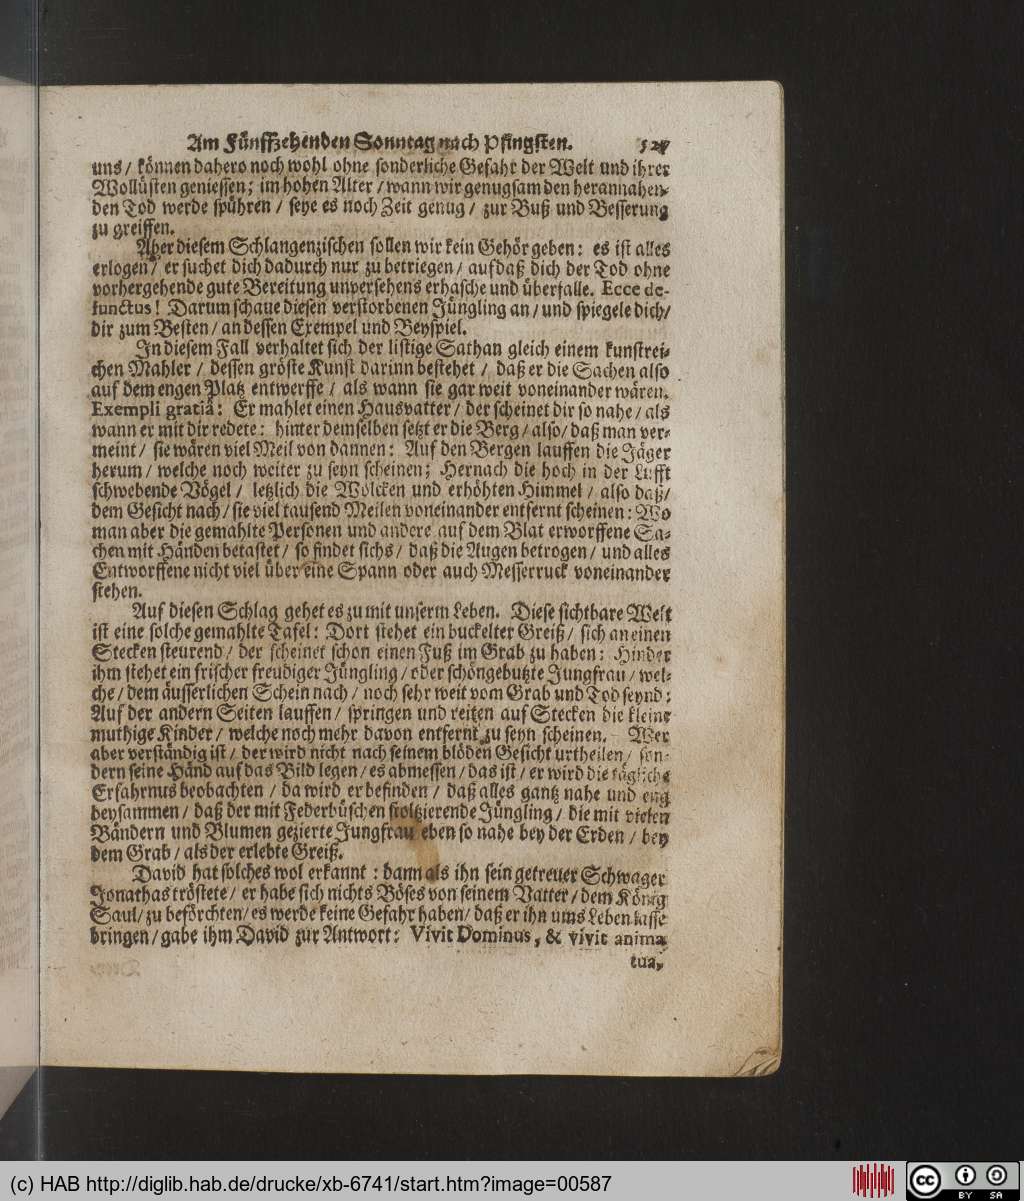 Am Fünffzehenden Sonntag nach Pfingsten. 527
uns / können dahero noch wohl ohne sonderliche Gefahr der Welt und ihrer
Wollüsten geniessen; im hohen Alter / wann wir genugsam den herannahen-
den Tod werde spühren / seye es noch Zeit genug / zur Buß und Besserung
zu greiffen.
Aber diesem Schlangenzischen sollen wir kein Gehör geben: es ist alles
erlogen / er suchet dich dadurch nur zu betriegen / auf daß dich der Tod ohne
vorhergehende gute Bereitung unversehens erhasche und überfalle. Ecce de-
functus! Darum schaue diesen verstorbenen Jüngling an / und spiegele dich /
dir zum Besten / an dessen Exempel und Beyspiel.
In diesem Fall verhaltet sich der listige Sathan gleich einem kunstrei-
chen Mahler / dessen gröste Kunst darinn bestehet / daß er die Sachen also
auf dem engen Platz entwerffe / als wann sie gar weit voneinander wären.
Exempli gratiâ: Er mahlet einen Hausvatter / der scheinet dir so nahe / als
wann er mit dir redete: hinter demselben setzt er die Berg / also / daß man ver-
meint / sie wären viel Meil von dannen: Auf den Bergen lauffen die Jäger
herum / welche noch weiter zu seyn scheinen; Hernach die hoch in der Lufft
schwebende Vögel / letzlich die Wolcken und erhöhten Himmel / also daß /
dem Gesicht nach / sie viel tausend Meilen voneinander entfernt scheinen: Wo
man aber die gemahlte Personen und andere auf dem Blat erworffene Sa-
chen mit Händen betastet / so findet sichs / daß die Augen betrogen / und alles
Entworffene nicht viel über eine Spann oder auch Messerruck voneinander
stehen.
Auf diesen Schlag gehet es zu mit unserm Leben. Diese sichtbare Welt
ist eine solche gemahlte Tafel: Dort stehet ein buckelter Greiß / sich an einen
Stecken steurend / der scheinet schon einen Fuß im Grab zu haben: Hinder
ihm stehet ein frischer freudiger Jüngling / oder schöngebutzte Jungfrau / wel-
che / dem äusserlichen Schein nach / noch sehr weit vom Grab und Tod seynd:
Auf der andern Seiten lauffen / springen und reitzen auf Stecken die kleine
muthige Kinder / welche noch mehr davon entfernt zu seyn scheinen. Wer
aber verständig ist / der wird nicht nach seinem blöden Gesicht urtheilen / son-
dern seine Händ auf das Bild legen / es abmessen / das ist / er wird die tägliche
Erfahrnus beobachten / da wird er befinden / daß alles gantz nahe und eng
beysammen / daß der mit Federbüschen stoltzierende Jüngling / die mit vielen
Bändern und Blumen gezierte Jungfrau eben so nahe bey der Erden / bey
dem Grab / als der erlebte Greiß.
David hat solches wol erkannt: dann als ihn sein getreuer Schwager
Jonathas tröstete / er habe sich nichts Böses von seinem Vatter / dem König
Saul / zu beförchten / es werde keine Gefahr haben / daß er ihn ums Leben lasse
bringen / gabe ihm David zur Antwort: Vivit Dominus, & vivit anima
tua,
(c) HAB http://diglib.hab.de/drucke/xb-6741/start.htm?image=00587
cc BY SA